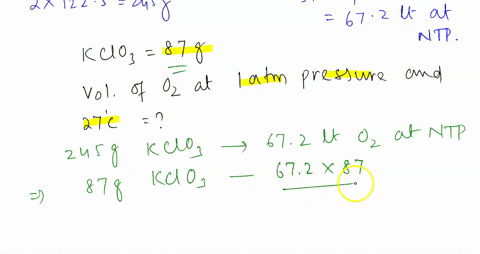 2 × 122.5 = 245g
= 67.2 lt at
NTP.
KClO3 = 87g
Vol. of O2 at 1atm pressure and
27°c = ?
245g KClO3 → 67.2 lt O2 at NTP
⇒ 87g KClO3 — 67.2 × 87